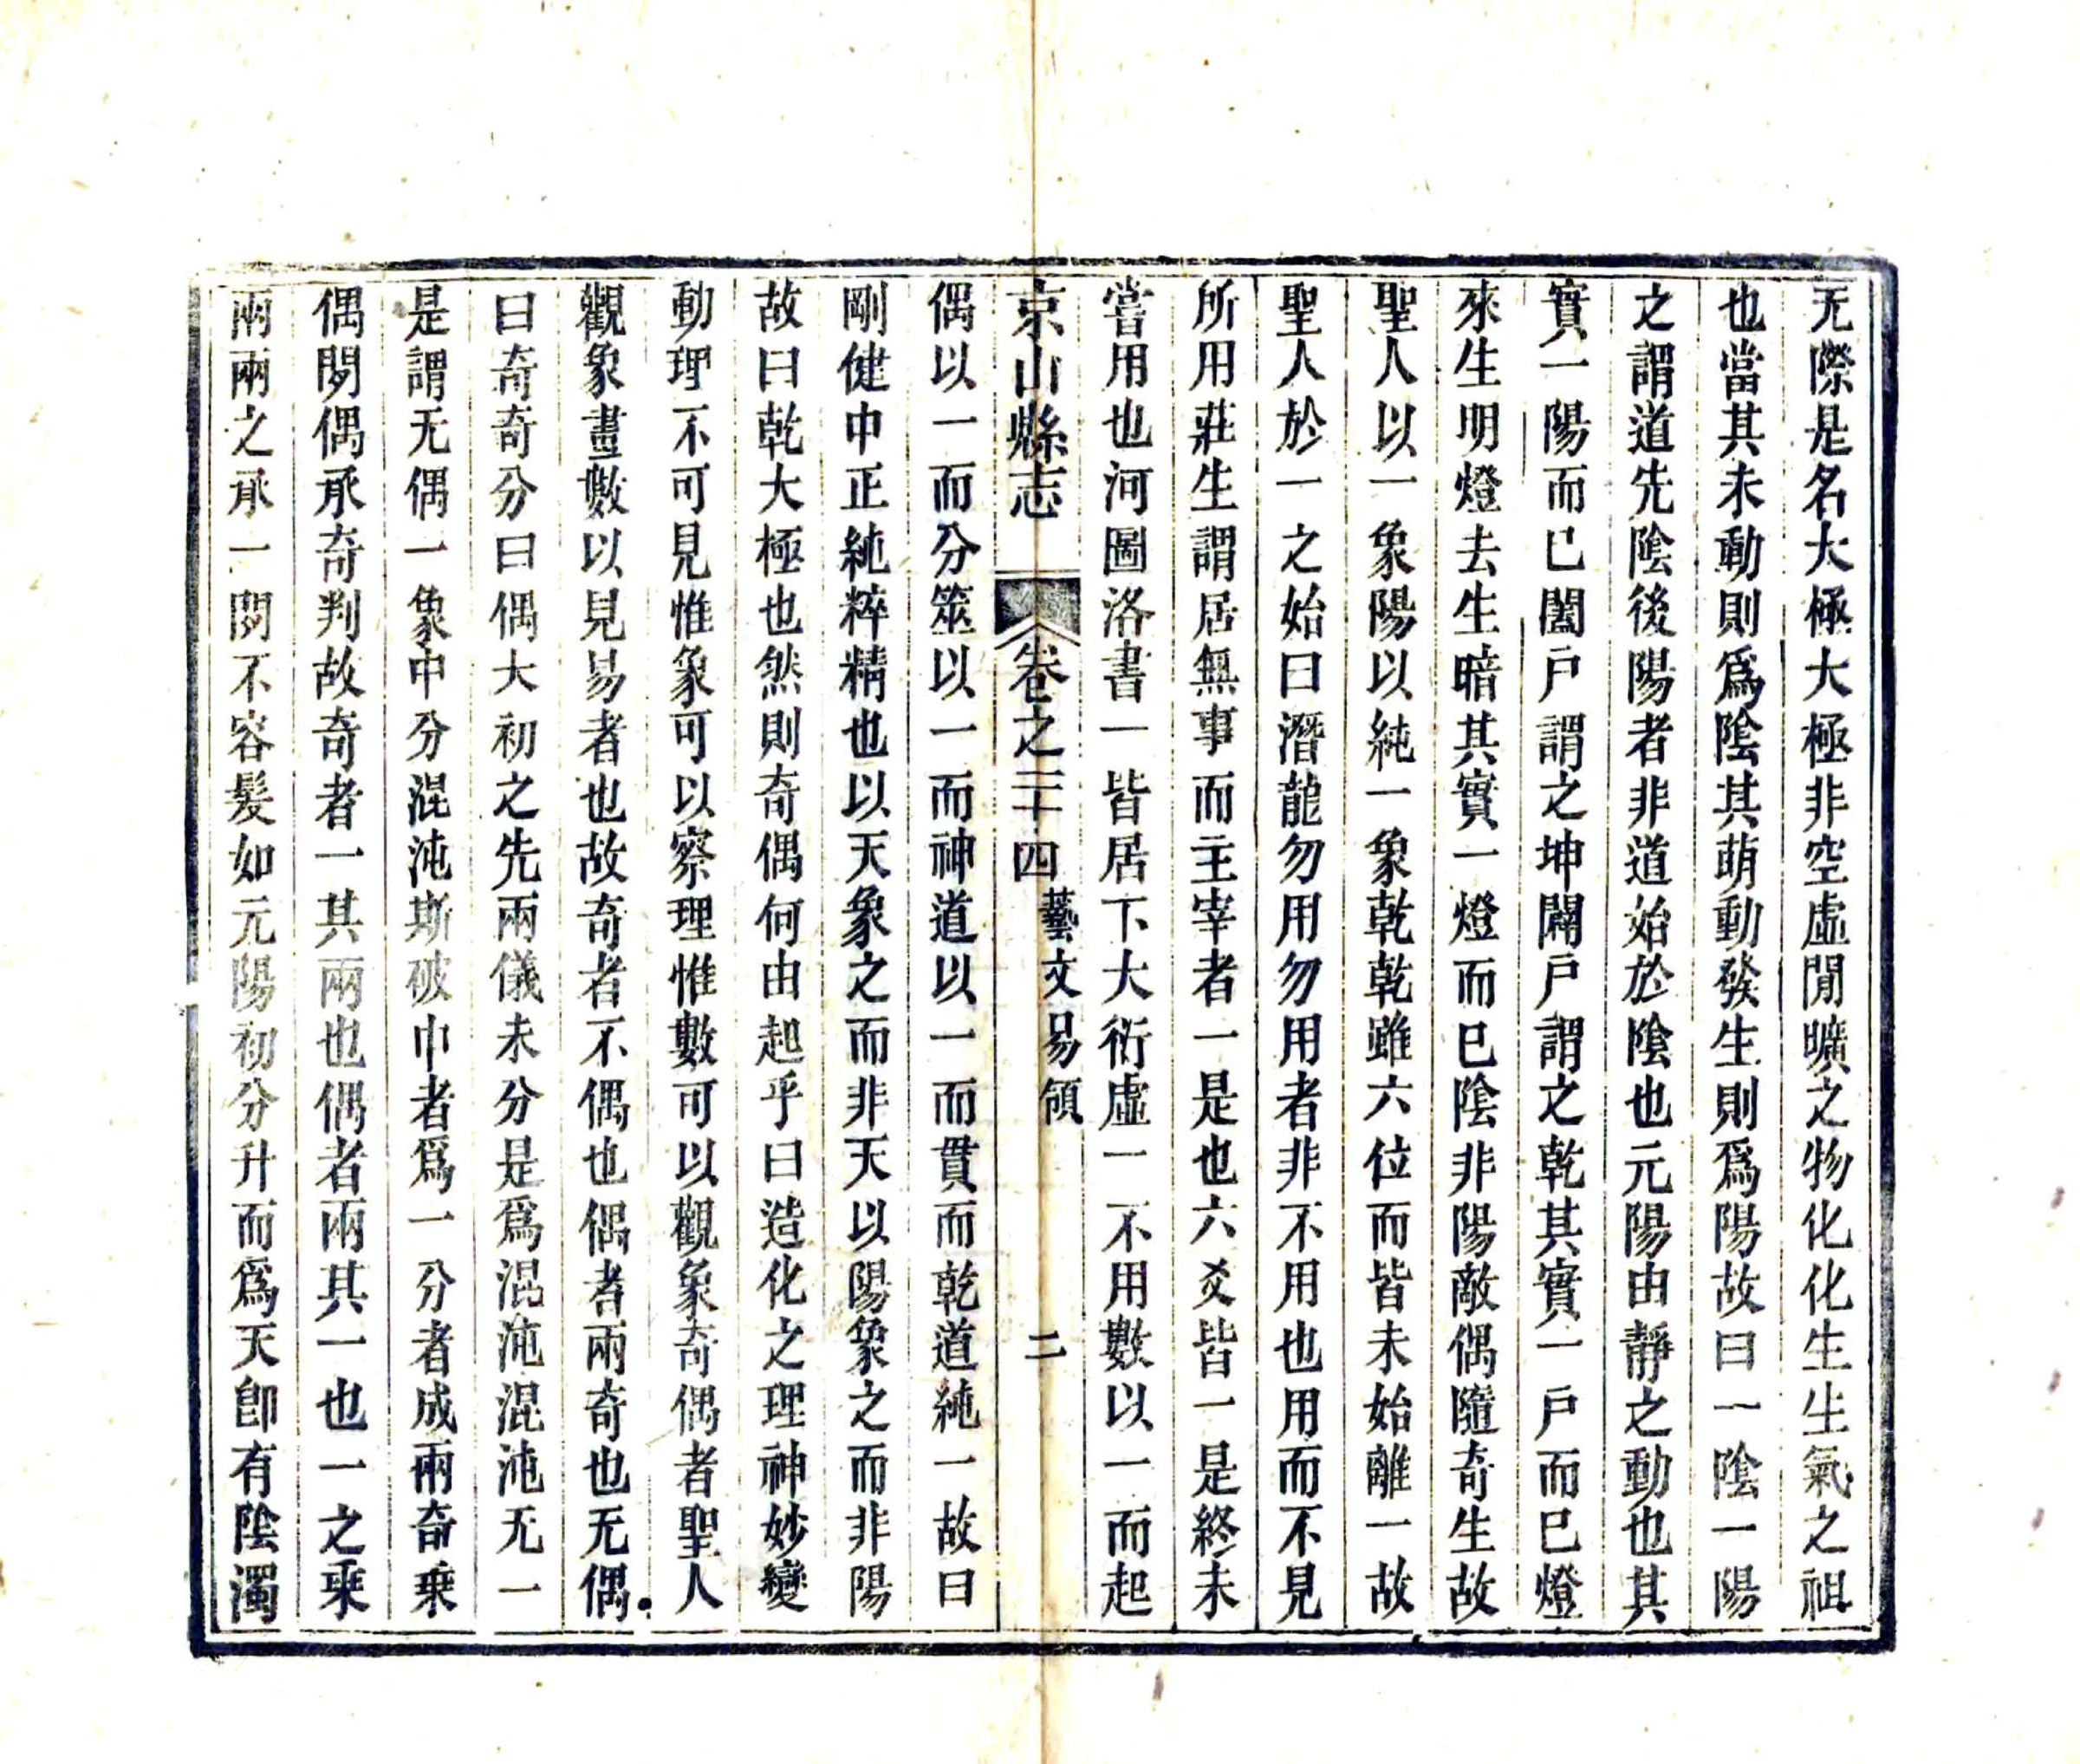 无際是名大極大極非空虛閒曠之物化化生生氣之祖
也當其未動則爲陰其萌動發生則爲陽故曰一陰一陽
之謂道先陰後陽者非道始於陰也元陽由靜之動也其
實一陽而已闔戶謂之坤闢戶謂之乾其實一戶而已燈
來生明燈去生暗其實一燈而已陰非陽敵偶隨奇生故
聖人以一象陽以純一象乾乾雖六位而皆未始離一故
聖人於一之始曰潛龍勿用勿用者非不用也用而不見
所用莊生謂居無事而主宰者一是也六爻皆一是終未
嘗用也河圖洛書一皆居下大衍虛一不用數以一而起
京山縣志 卷之二十四 藝文 易領 二
偶以一而分筮以一而神道以一而貫而乾道純一故曰
剛健中正純粹精也以天象之而非天以陽象之而非陽
故曰乾大極也然則奇偶何由起乎曰造化之理神妙變
動理不可見惟象可以察理惟數可以觀象奇偶者聖人
觀象畫數以見易者也故奇者不偶也偶者兩奇也无偶
曰奇奇分曰偶大初之先兩儀未分是爲混沌混沌无一
是謂无偶一象中分混沌斯破中者爲一分者成兩奇乗
偶閒偶承奇判故奇者一其兩也偶者兩其一也一之乗
兩兩之承一閒不容髮如元陽初分升而爲天卽有陰濁